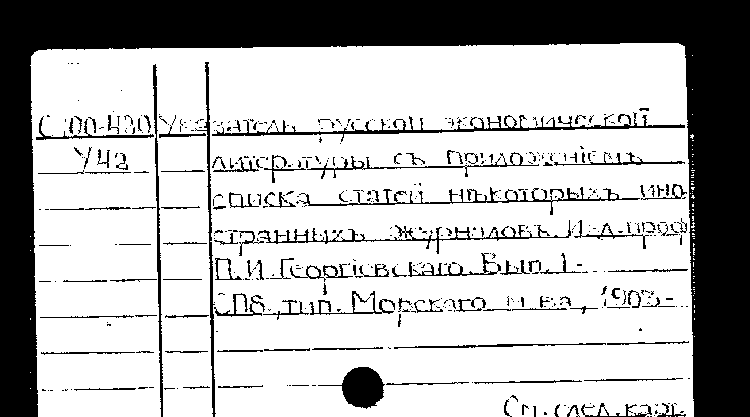 С 100-430 Указатель русской экономической
У42 литературы съ приложенiемъ
списка статей нѣкоторыхъ ино
странныхъ журналовъ. Изд. проф
П.И. Георгiевскаго. Вып. 1-
СПб., тип. Морскаго м-ва, 1903-
См. след. карт.